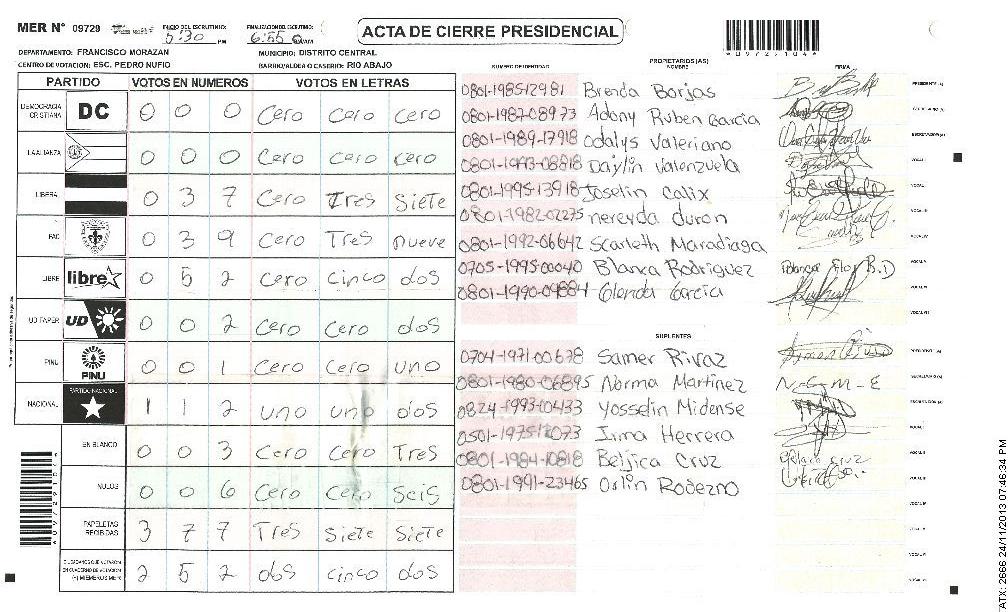 MER Nº 09729 INICIO DEL ESCRUTINIO: 5:30 PM FINALIZACION DEL ESCRUTINIO: 6:55 ACTA DE CIERRE PRESIDENCIAL
*09729104*
DEPARTAMENTO: FRANCISCO MORAZAN MUNICIPIO: DISTRITO CENTRAL
CENTRO DE VOTACION: ESC. PEDRO NUFIO BARRIO/ALDEA O CASERIO: RIO ABAJO
PARTIDO VOTOS EN NUMEROS VOTOS EN LETRAS
DEMOCRACIA CRISTIANA DC 0 0 0 Cero Cero cero
LA ALIANZA 0 0 0 Cero cero cero
LIBERAL 0 3 7 Cero Tres Siete
PAC 0 3 9 Cero Tres nueve
LIBRE libre 0 5 2 Cero cinco dos
UD FAPER UD 0 0 2 Cero Cero dos
PINU PINU 0 0 1 Cero Cero uno
NACIONAL PARTIDO NACIONAL 1 1 2 uno uno dos
EN BLANCO 0 0 3 Cero Cero Tres
NULOS 0 0 6 Cero Cero Seis
PAPELETAS RECIBIDAS 3 7 7 Tres Siete Siete
CIUDADANOS QUE VOTARON EN CUADERNO DE VOTACION (+) MIEMBROS MER 2 5 2 dos cinco dos
PROPIETARIOS (AS)
NUMERO DE IDENTIDAD NOMBRE FIRMA
0801-1985-12981 Brenda Borjas PRESIDENTE (A)
0801-1987-08973 Adony Ruben Garcia
0801-1989-17918 Odalys Valeriano SECRETARIO (A)
0801-1993-08818 Daylin Valenzuela VOCAL I
0801-1995-13918 Joselin Calix
0801-1982-02275 nereyda duron
0801-1992-06642 Scarleth Maradiaga
0705-1995-00040 Blanca Rodriguez Blanca Flor R.D
0801-1990-09884 Glenda Garcia
SUPLENTES
0704-1971-00678 Samer Rivaz PRESIDENTE (A)
0801-1980-06895 Norma Martinez
0824-1993-00433 Yosselin Midense
0501-1975-12073 Irma Herrera
0801-1984-10818 Beljica Cruz
0801-1991-23465 Orlin Rodezno
ATX: 2666 24/11/2013 07:46:34 PM